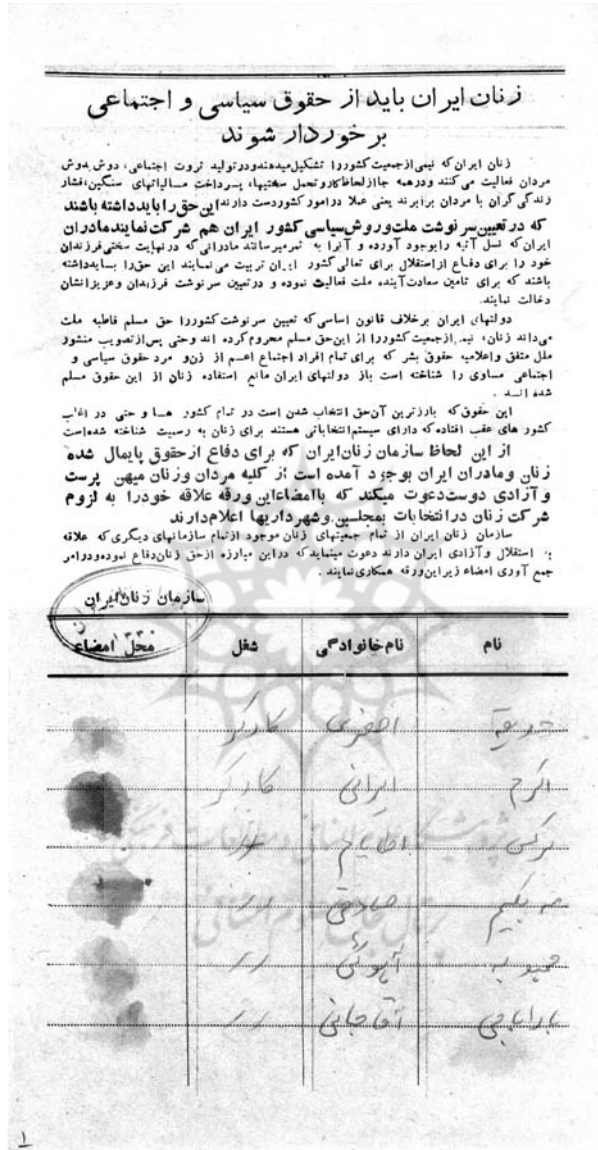 زنان ایران باید از حقوق سیاسی و اجتماعی
برخوردار شوند
زنان ایران که نیمی از جمعیت کشور را تشکیل میدهند و در تولید ثروت اجتماعی، دوش بدوش
مردان فعالیت می کنند و در همه جا از لحاظ کار و تحمل سختیها، پرداخت مالیاتهای سنگین، فشار
زندگی گران با مردان برابرند یعنی عملا در امور کشور دست دارند این حق را باید داشته باشند
که در تعیین سرنوشت ملت و روش سیاسی کشور ایران هم شرکت نمایند مادران
ایران که نسل آتیه را بوجود آورده و آنرا به ثمر میرسانند مادرانی که در نهایت سختی فرزندان
خود را برای دفاع از استقلال برای تعالی کشور ایران تربیت می نمایند این حق را باید داشته
باشند که برای تامین سعادت آینده ملت فعالیت نموده و در تعیین سرنوشت فرزندان و عزیزانشان
دخالت نمایند.
دولتهای ایران برخلاف قانون اساسی که تعیین سرنوشت کشور را حق مسلم قاطبه ملت
می داند زنان، نیمی از جمعیت کشور را از این حق مسلم محروم کرده اند وحتی پس از تصویب منشور
ملل متفق و اعلامیه حقوق بشر که برای تمام افراد اجتماع اعم از زن و مرد حقوق سیاسی و
اجتماعی مساوی را شناخته است باز دولتهای ایران مانع استفاده زنان از این حقوق مسلم
شده اند.
این حقوق که بارزترین آن حق انتخاب شدن است در تمام کشور هـا و حتی در اغلب
کشور های عقب افتاده که دارای سیستم انتخاباتی هستند برای زنان به رسمیت شناخته شده است
از این لحاظ سازمان زنان ایران که برای دفاع از حقوق پایمال شده
زنان و مادران ایران بوجود آمده است از کلیه مردان و زنان میهن پرست
و آزادی دوست دعوت میکند که با امضاء این ورقه علاقه خود را به لزوم
شرکت زنان در انتخابات مجلسین و شهرداریها اعلام دارند
سازمان زنان ایران از تمام جمعیتهای زنان موجود از تمام سازمانهای دیگری که علاقه
به استقلال و آزادی ایران دارند دعوت مینماید که در این مبارزه از حق زنان دفاع نموده و در امر
جمع آوری امضاء زیر این ورقه همکاری نمایند.
سازمان زنان ایران
نام نام خانوادگی شغل محل امضاء
اصغری کارگر
اکرم ایرانی کارگر
نرگس 〃
بیگم صادقی 〃
محبوبه 〃
آقاجانی 〃
۱